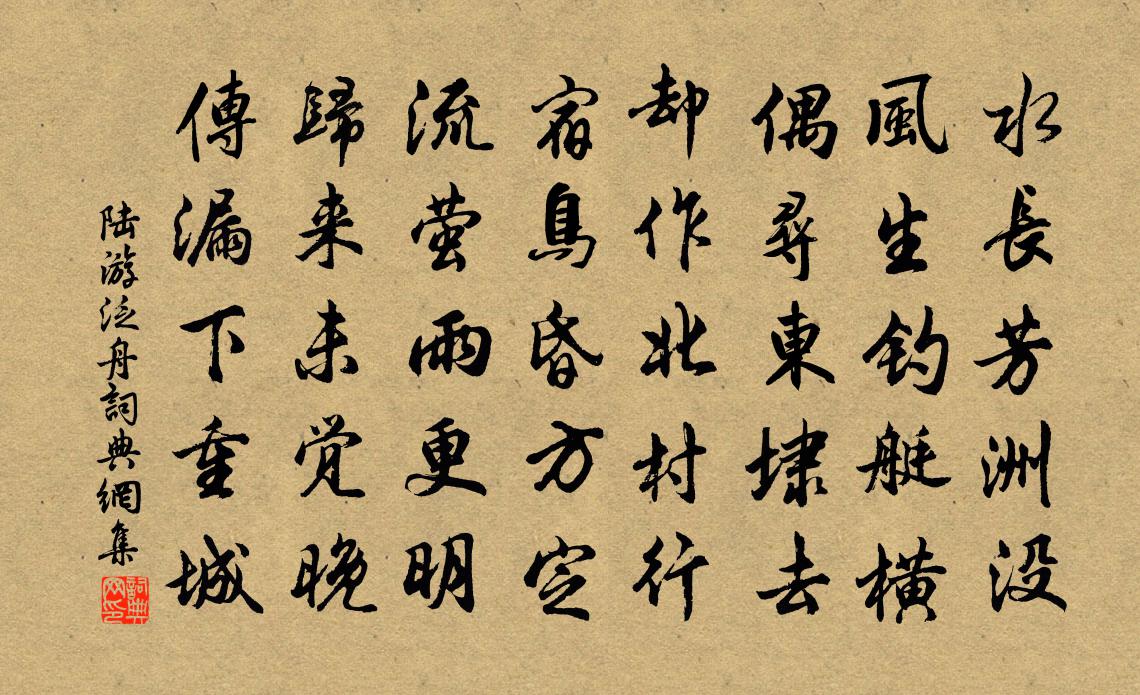 水長芳洲没
風生釣艇橫
偶尋東埭去
却作北村行
宿鳥昏方定
流萤雨更明
歸来未覚晚
傳漏下重城
陆游泛舟詞典網集
詞典网印